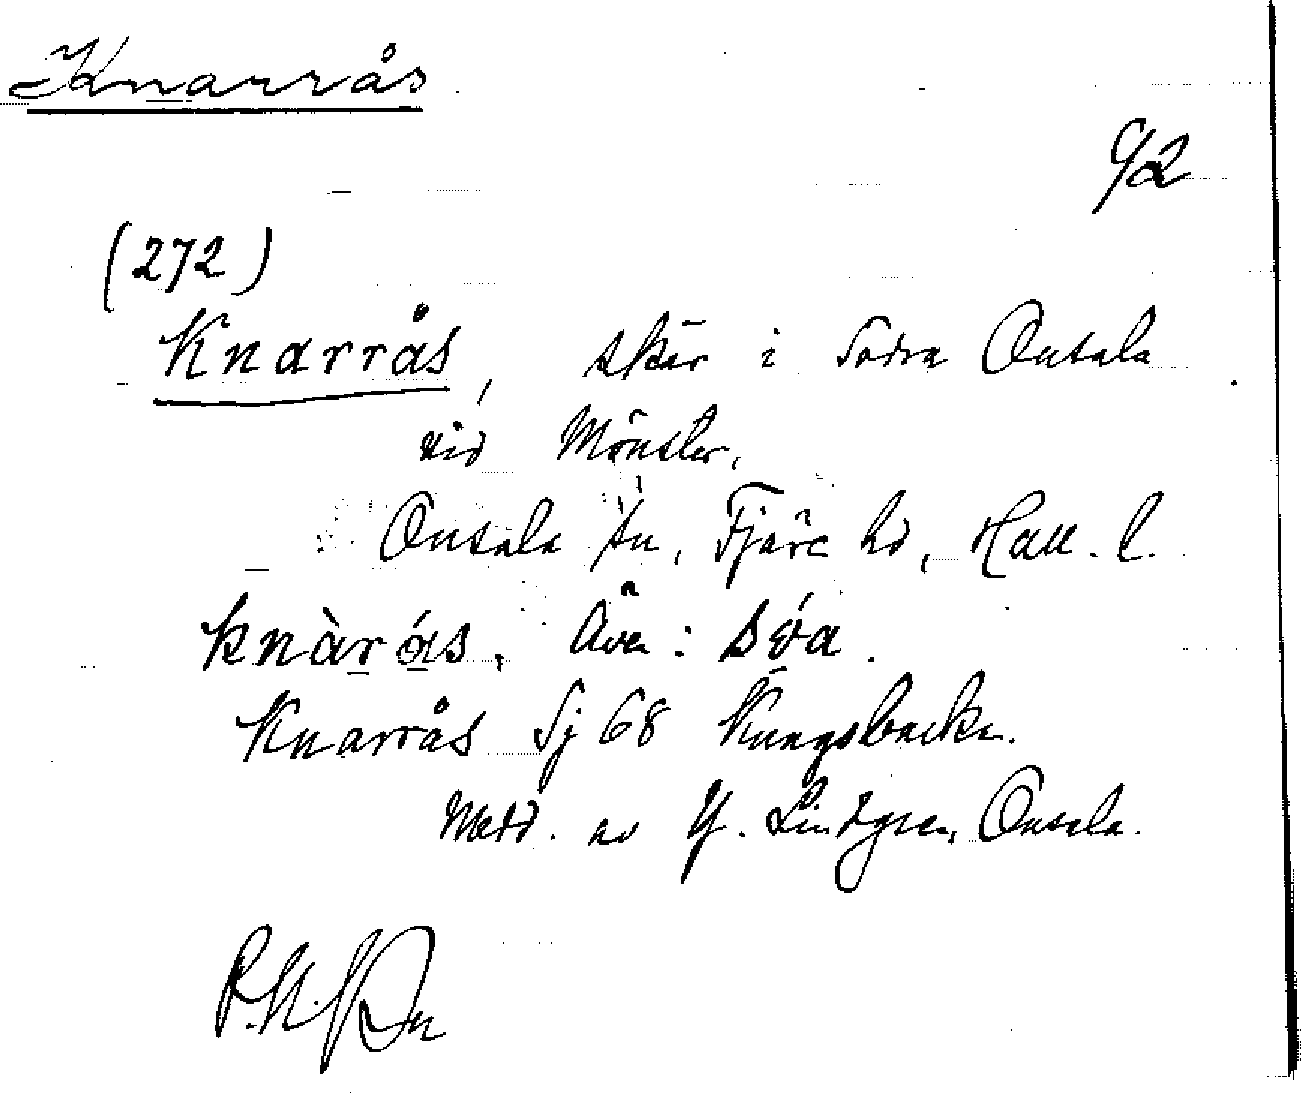 Knarrås
92
(272)
Knarrås, skär i Södra Onsala
vid Mönster,
Onsala sn, Fjäre hd, Hall. l.
knàrás. Även:
Knarrås Sj 68 Kungsbacka.
Medd. av Y. Lindgren, Onsala.